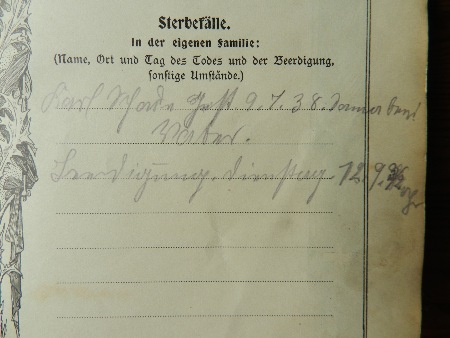 Sterbefälle.
In der eigenen Familie:
(Name, Ort und Tag des Todes und der Beerdigung,
sonstige Umstände.)
Karl Schade 9.7.38.
Vater.
Beerdigung. Dienstag 12.